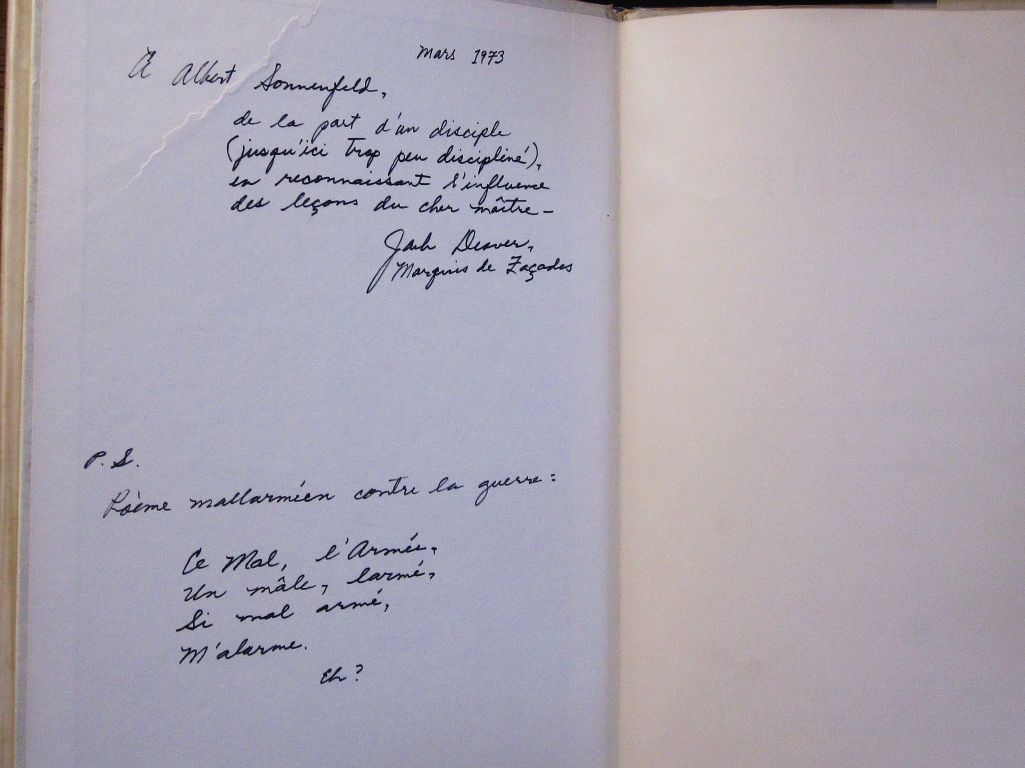 Mars 1973
À Albert Sonnenfeld,
de la part d'un disciple
(jusqu'ici trop peu discipliné),
en reconnaissant l'influence
des leçons du cher maître—
Jack Deaver,
Marquis de Façades
P.S.
Poème mallarméen contre la guerre:
Ce Mal, l'Armée,
Un mâle, larmé,
Si mal armé,
M'alarme.
Eh?